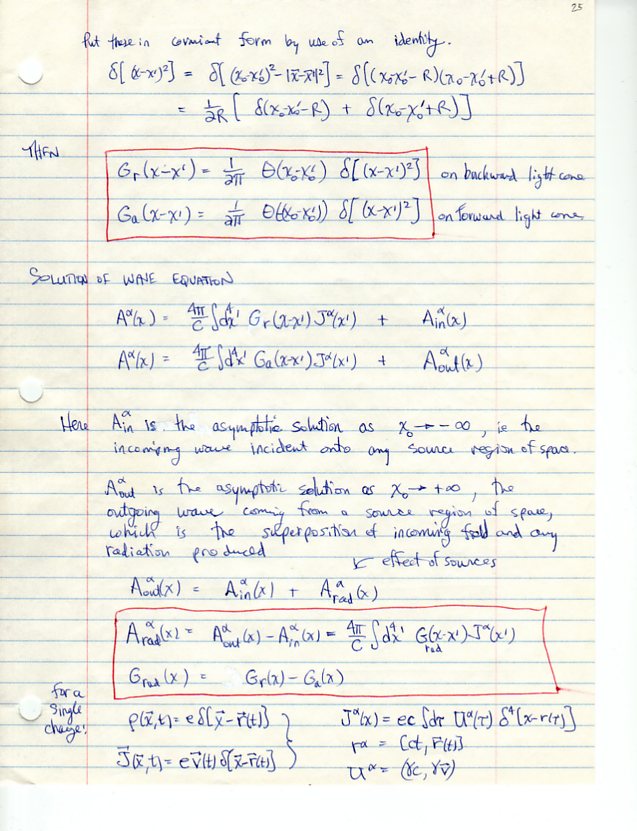 25
Put these in covariant form by use of an identity.
δ[(x-x')²] = δ[(x₀-x₀')²-|x⃗-x⃗'|²] = δ[(x₀-x₀'-R)(x₀-x₀'+R)]
= 1/2R [ δ(x₀-x₀'-R) + δ(x₀-x₀'+R)]
THEN
Gᵣ(x-x') = 1/2π θ(x₀-x₀') δ[(x-x')²] on backward light cone
Gₐ(x-x') = 1/2π θ(-(x₀-x₀')) δ[(x-x')²] on forward light cone
SOLUTION OF WAVE EQUATION
Aᵅ(x) = 4π/c ∫d⁴x' Gᵣ(x-x') Jᵅ(x') + Aᵅin(x)
Aᵅ(x) = 4π/c ∫d⁴x' Gₐ(x-x') Jᵅ(x') + Aᵅout(x)
Here Aᵅin is the asymptotic solution as x₀→-∞, ie the
incoming wave incident onto any source region of space.
Aᵅout is the asymptotic solution as x₀→+∞, the
outgoing wave coming from a source region of space,
which is the superposition of incoming field and any
radiation produced
↙ effect of sources
Aᵅout(x) = Aᵅin(x) + Aᵅrad(x)
Aᵅrad(x) = Aᵅout(x) - Aᵅin(x) = 4π/c ∫d⁴x' Grad(x-x') Jᵅ(x')
Grad(x) = Gᵣ(x) - Gₐ(x)
for a
single
charge:
ρ(x⃗,t) = e δ[x⃗-r⃗(t)]
J⃗(x⃗,t) = e v⃗(t) δ[x⃗-r⃗(t)]
Jᵅ(x) = ec ∫dτ Uᵅ(τ) δ⁴[x-r(τ)]
rᵅ = [ct, r⃗(t)]
Uᵅ = (γc, γv⃗)